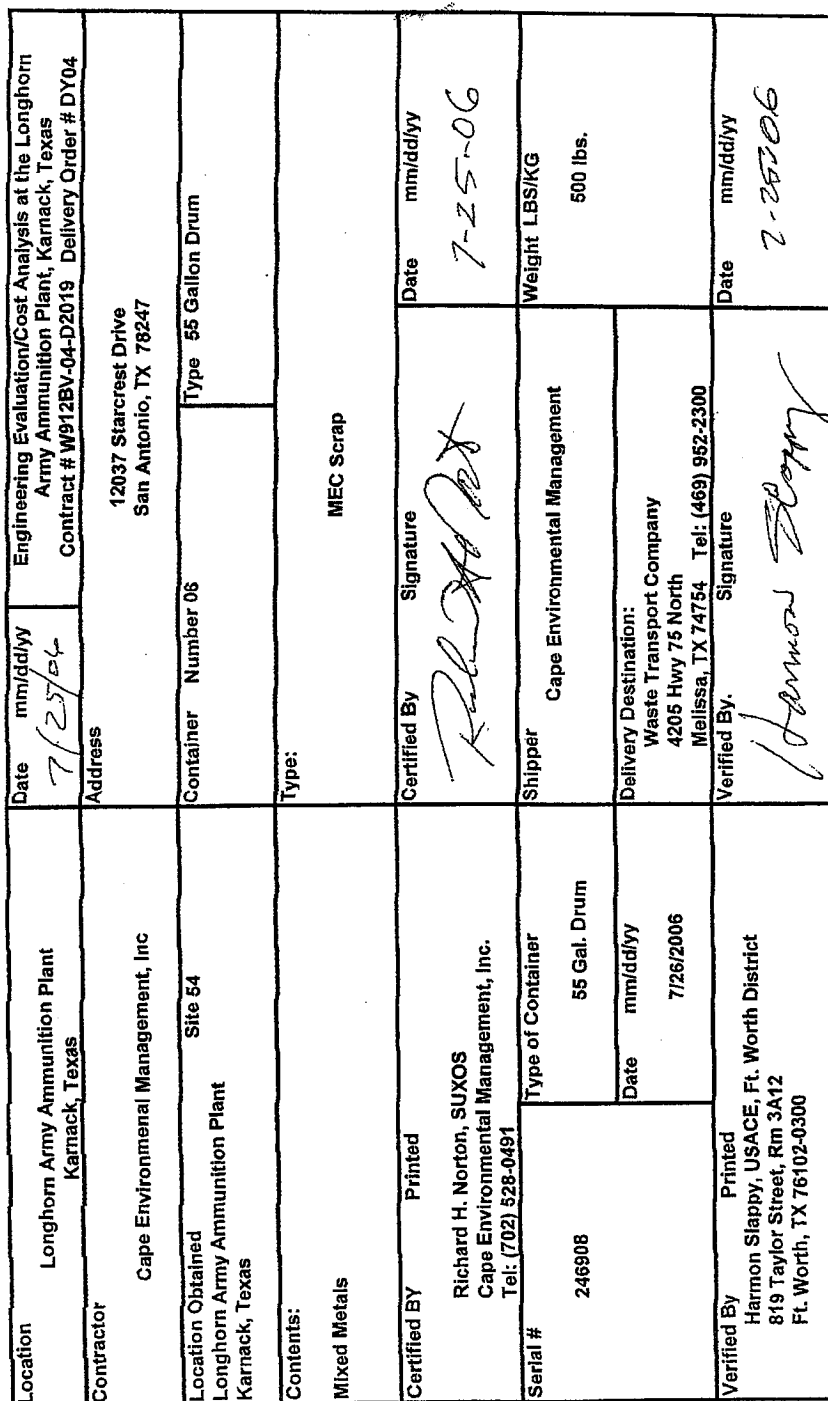 Location
Longhorn Army Ammunition Plant
Karnack, Texas
Date mm/dd/yy
7/25/06
Engineering Evaluation/Cost Analysis at the Longhorn
Army Ammunition Plant, Karnack, Texas
Contract # W912BV-04-D2019 Delivery Order # DY04
Contractor
Cape Environmenal Management, Inc
Address
12037 Starcrest Drive
San Antonio, TX 78247
Location Obtained Site 54
Longhorn Army Ammunition Plant
Karnack, Texas
Container Number 06
Type 55 Gallon Drum
Contents:
Mixed Metals
Type:
MEC Scrap
Certified BY Printed
Richard H. Norton, SUXOS
Cape Environmental Management, Inc.
Tel: (702) 528-0491
Certified By Signature
Date mm/dd/yy
7-25-06
Serial #
246908
Type of Container
55 Gal. Drum
Shipper
Cape Environmental Management
Weight LBS/KG
500 lbs.
Date mm/dd/yy
7/26/2006
Delivery Destination:
Waste Transport Company
4205 Hwy 75 North
Melissa, TX 74754 Tel: (469) 952-2300
Verified By Printed
Harmon Slappy, USACE, Ft. Worth District
819 Taylor Street, Rm 3A12
Ft. Worth, TX 76102-0300
Verified By. Signature
Harmon Slappy
Date mm/dd/yy
7-25-06